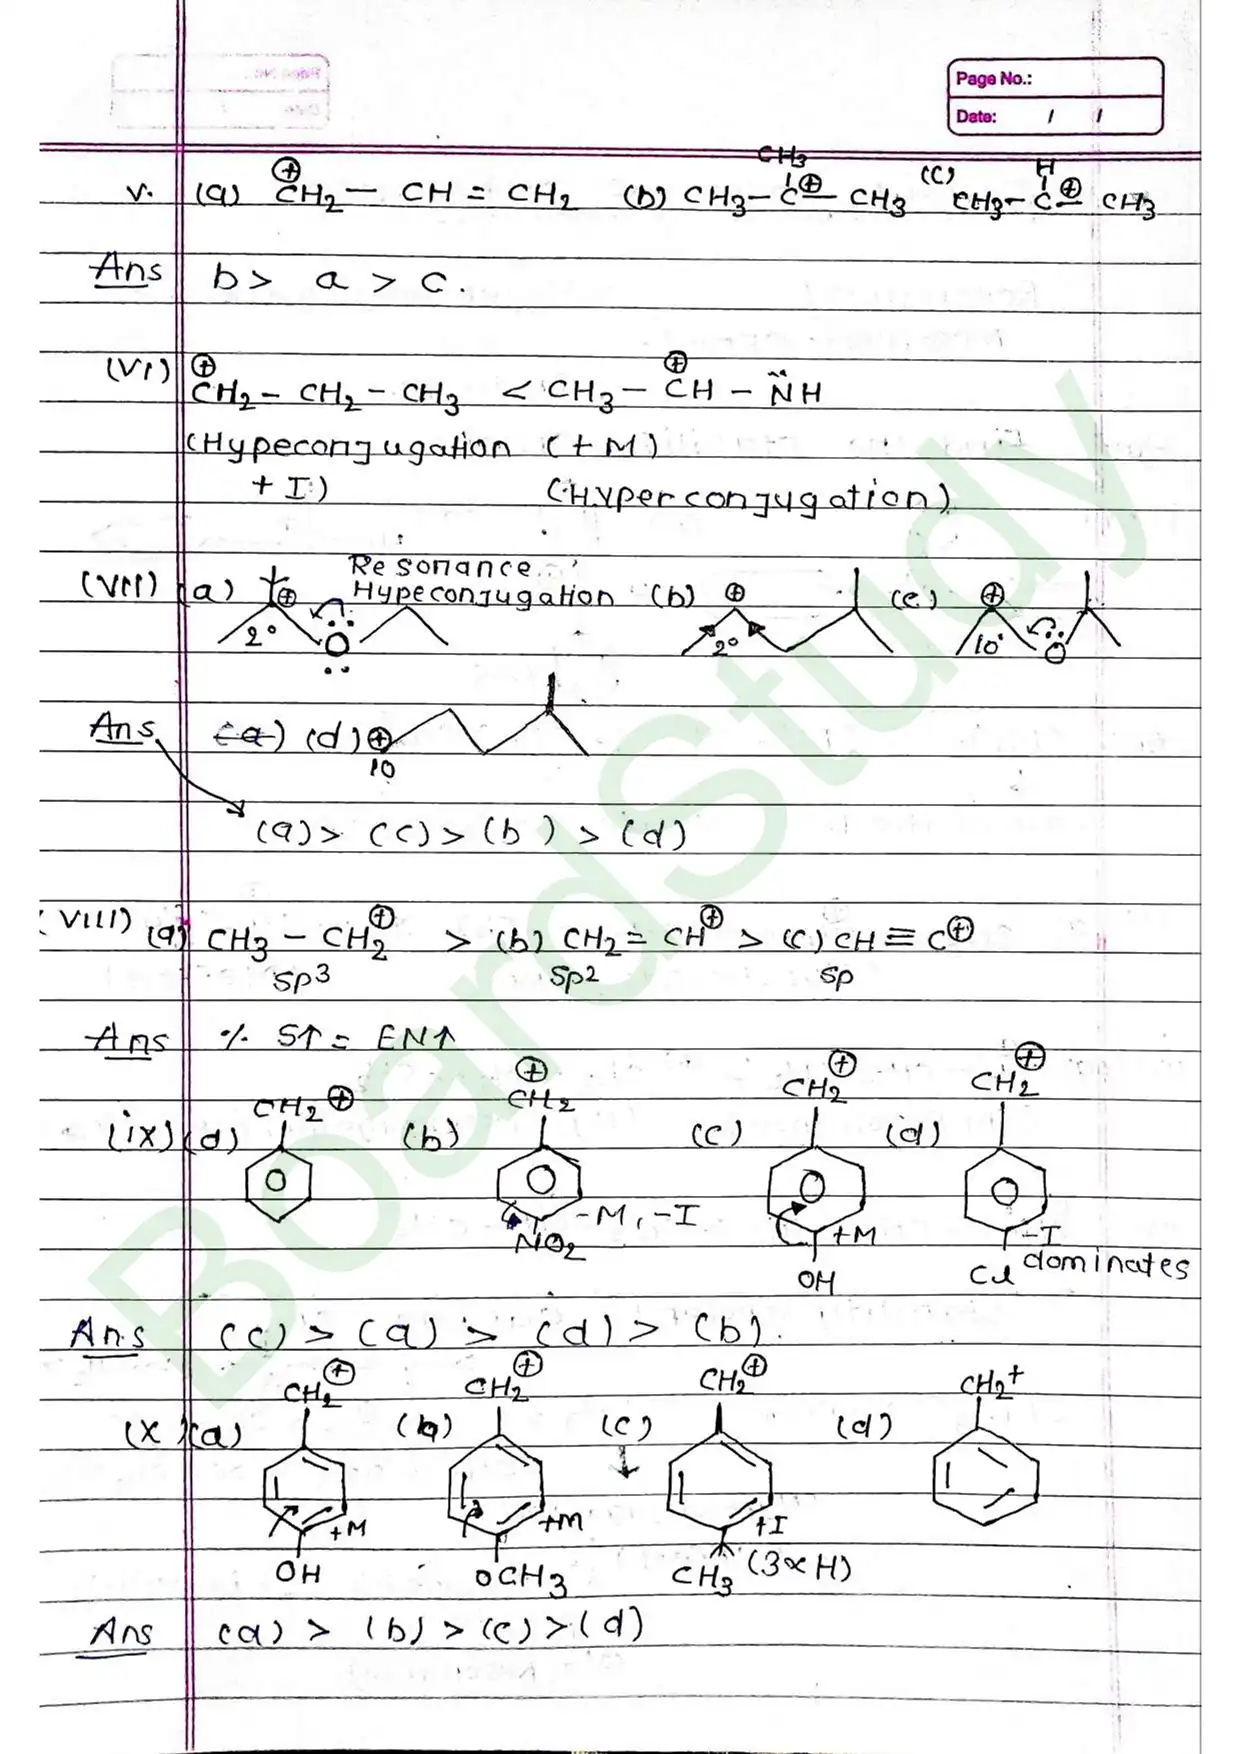 Page No.:
Date: / /
v. (a) ⊕CH2 — CH = CH2 (b) CH3 — C⊕ — CH3 (c) CH3 - C⊕ - CH3
CH3 H
Ans b > a > c.
(VI) ⊕CH2 - CH2 - CH3 < CH3 - ⊕CH - N̈H
(Hypeconjugation (+M)
+ I) (Hyperconjugation)
(VII) (a) ⊕ 2° O Resonance
Hypeconjugation (b) ⊕ 2° (c) ⊕ 10° O
Ans (a) (d) ⊕ 10
(a) > (c) > (b) > (d)
(VIII) (a) CH3 - CH2⊕ > (b) CH2 = CH⊕ > (c) CH ≡ C⊕
sp3 sp2 sp
Ans % S↑ = EN↑
(ix) (a) CH2⊕ (b) CH2⊕ (c) CH2⊕ (d) CH2⊕
-M, -I +M -I
NO2 OH Cl dominates
Ans (c) > (a) > (d) > (b).
(X) (a) CH2⊕ (b) CH2⊕ (c) CH2⊕ (d) CH2+
+M +M +I
OH OCH3 CH3 (3αH)
Ans (a) > (b) > (c) > (d)
BoardStudy